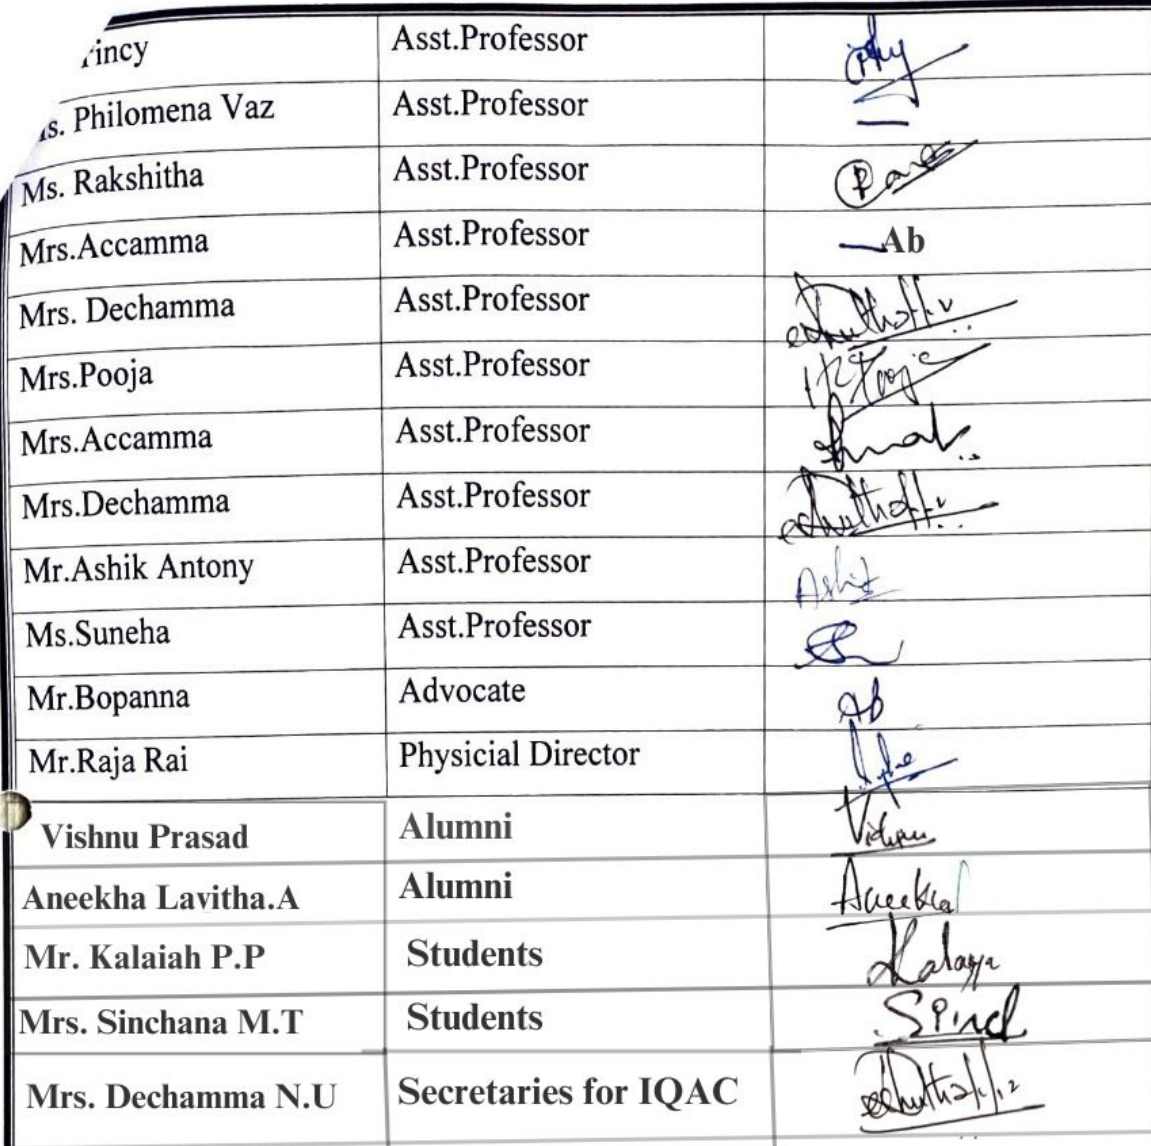 rincy Asst.Professor
s. Philomena Vaz Asst.Professor
Ms. Rakshitha Asst.Professor
Mrs.Accamma Asst.Professor Ab
Mrs. Dechamma Asst.Professor
Mrs.Pooja Asst.Professor Pooja
Mrs.Accamma Asst.Professor
Mrs.Dechamma Asst.Professor
Mr.Ashik Antony Asst.Professor Ashik
Ms.Suneha Asst.Professor
Mr.Bopanna Advocate Ab
Mr.Raja Rai Physicial Director
Vishnu Prasad Alumni Vishnu
Aneekha Lavitha.A Alumni Aneekha
Mr. Kalaiah P.P Students
Mrs. Sinchana M.T Students
Mrs. Dechamma N.U Secretaries for IQAC